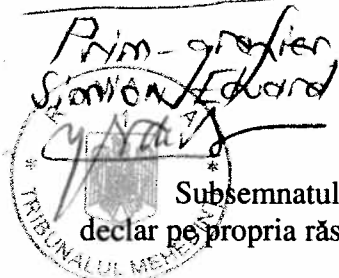 Prim-grefier
Simion Eduard
TRIBUNALUL MEHE
Subsemnatul
declar pe propria răs